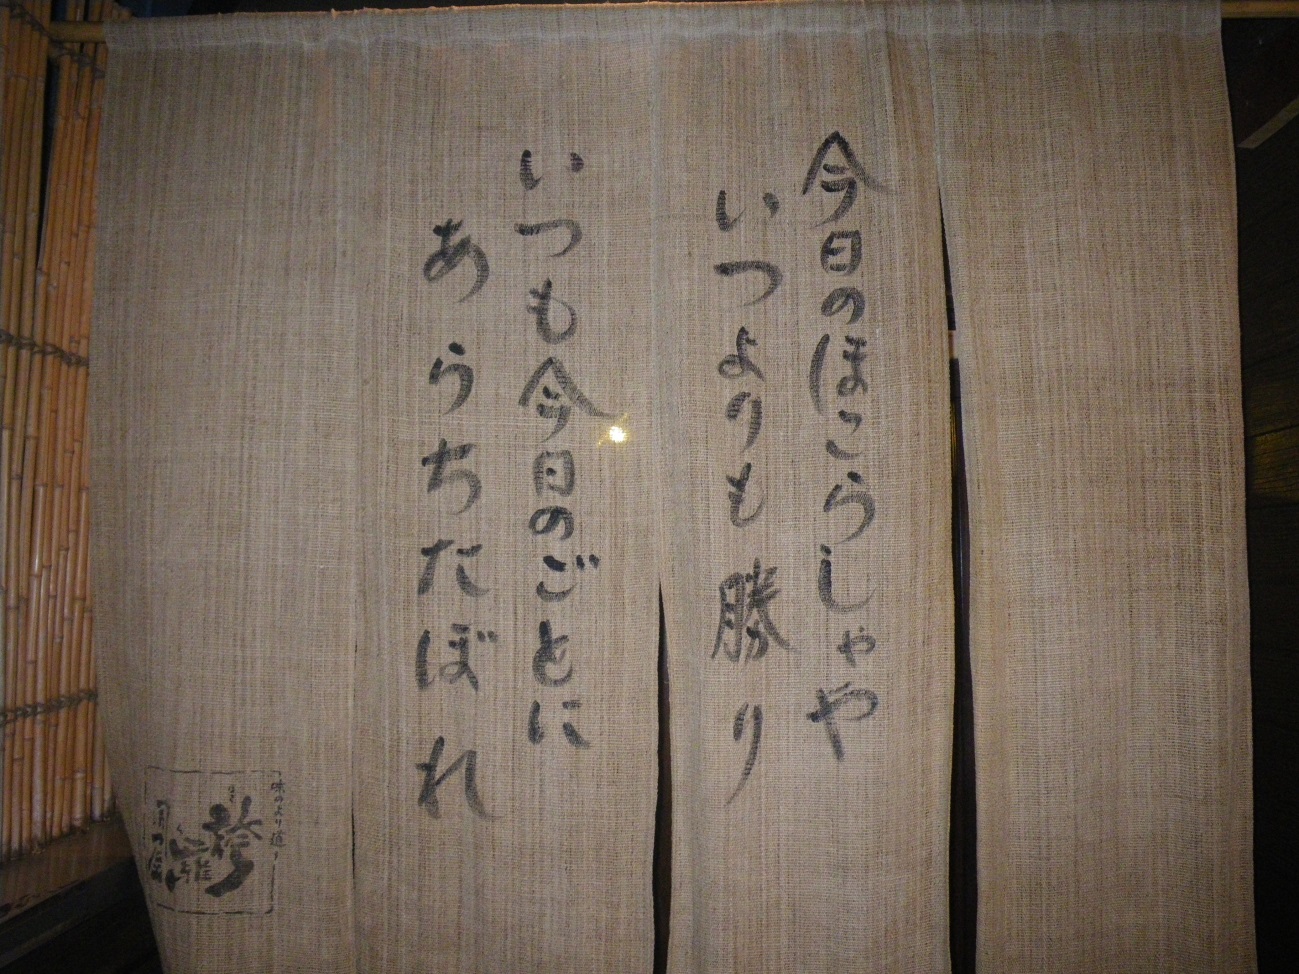 今日のほこらしゃや
いつよりも勝り
いつも今日のごとに
あらちたぼれ
味のより道